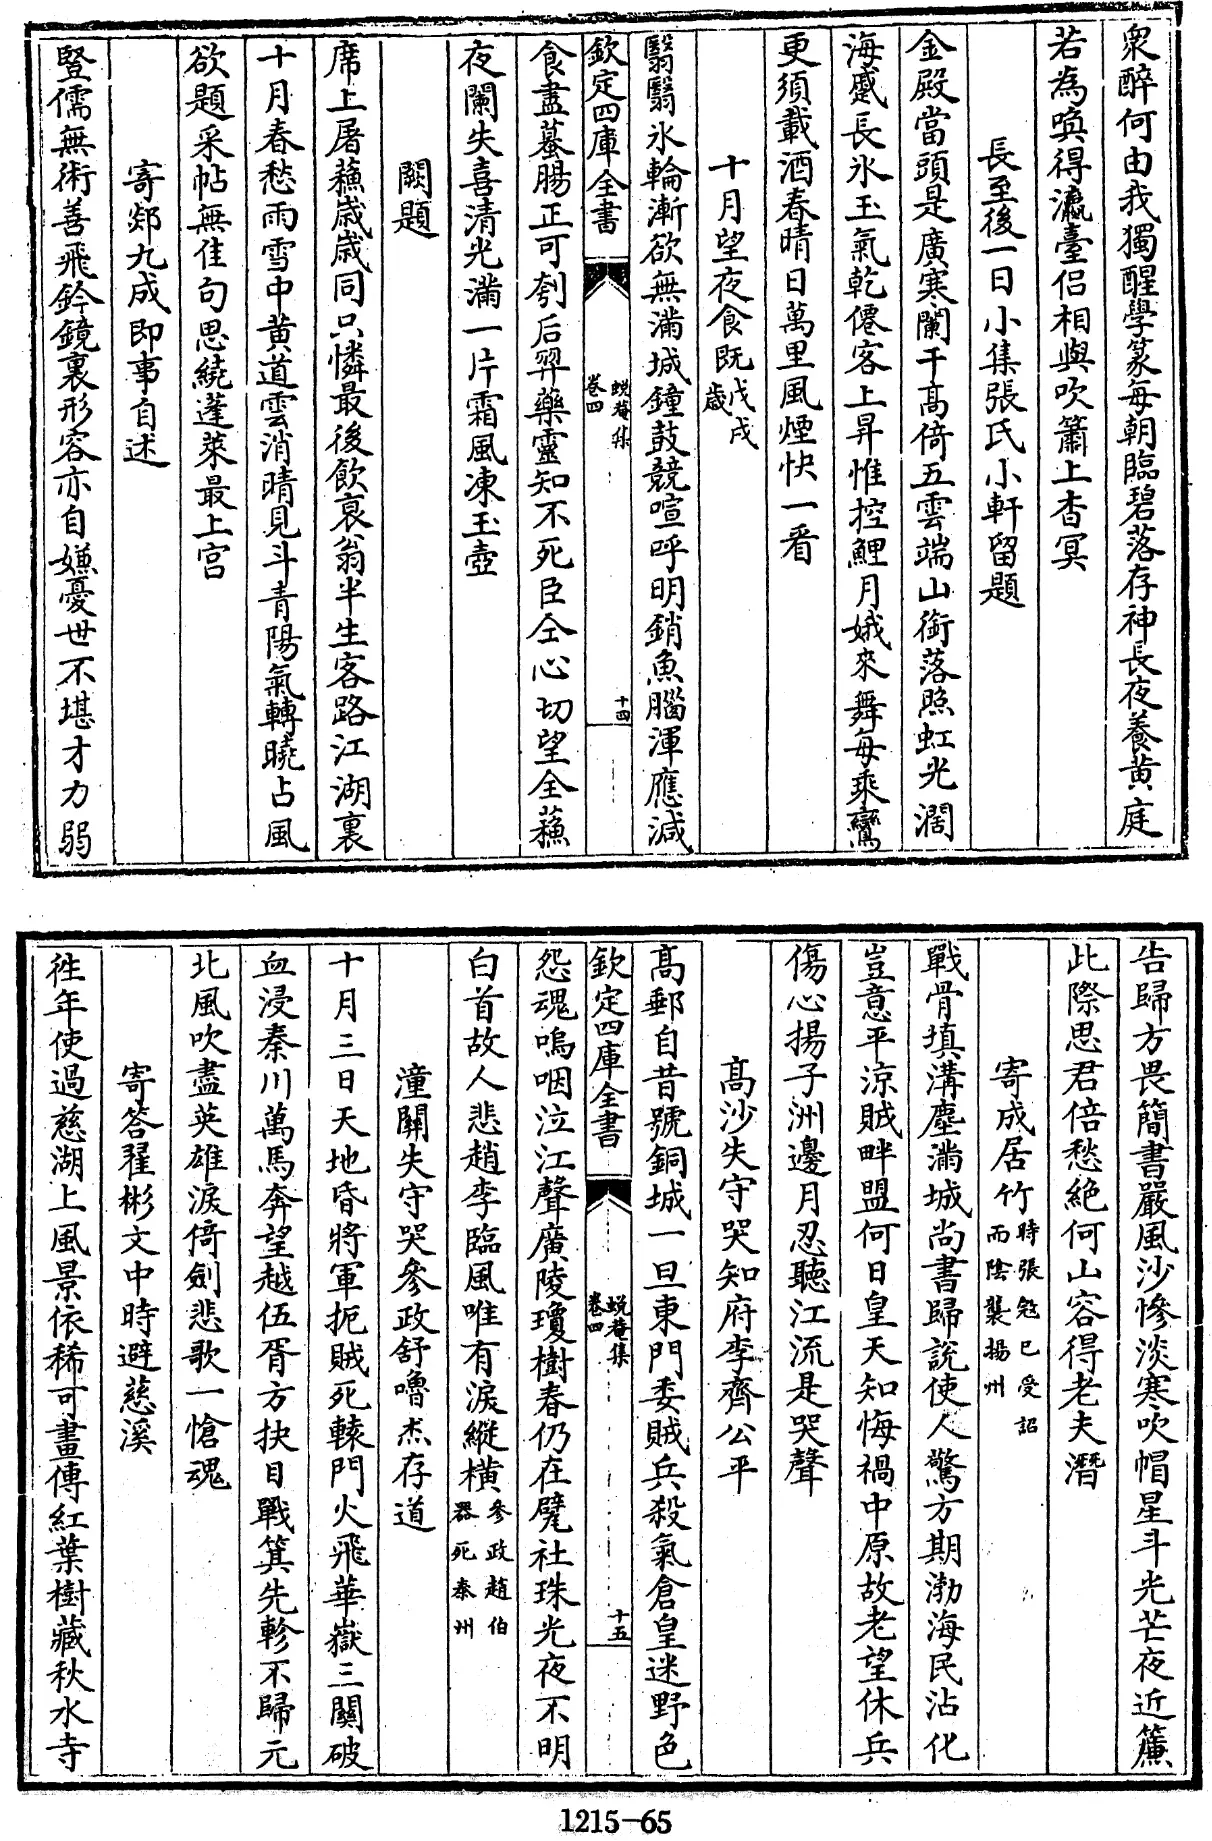 衆醉何由我獨醒學篆每朝臨碧落存神長夜養黄庭
若為喚得瀛臺侣相與吹簫上杳冥
長至後一日小集張氏小軒留題
金殿當頭是廣寒闌干髙倚五雲端山銜落照虹光濶
海蹙長氷玉氣乾僊客上昇惟控鯉月娥來舞每乘鸞
更須載酒春晴日萬里風煙快一看
十月望夜食既戊戌歲
翳翳氷輪漸欲無滿城鐘鼓競喧呼明銷魚腦渾應減
欽定四庫全書
蜕菴集
卷四
十四
食盡蟇腸正可刳后羿藥靈知不死臣仝心切望全蘓
夜闌失喜清光滿一片霜風凍玉壺
闕題
席上屠蘓歳歳同只憐最後飲衰翁半生客路江湖裏
十月春愁雨雪中黄道雲消晴見斗青陽氣轉曉占風
欲題采帖無佳句思繞蓬萊最上宫
寄郯九成即事自述
豎儒無術善飛鈐鏡裏形容亦自嫌憂世不堪才力弱
告歸方畏簡書嚴風沙慘淡寒吹帽星斗光芒夜近簾
此際思君倍愁絶何山容得老夫潛
寄成居竹時張冦已受詔而陰襲揚州
戰骨填溝塵滿城尚書歸説使人驚方期渤海民沾化
豈意平涼賊畔盟何日皇天知悔禍中原故老望休兵
傷心揚子洲邊月忍聽江流是哭聲
髙沙失守哭知府李齊公平
髙郵自昔號銅城一旦東門委賊兵殺氣倉皇迷野色
欽定四庫全書
蜕菴集
卷四
十五
怨魂嗚咽泣江聲廣陵瓊樹春仍在甓社珠光夜不明
白首故人悲趙李臨風唯有淚縱横參政趙伯器死泰州
潼關失守哭參政舒嚕杰存道
十月三日天地昏將軍扼賊死轅門火飛華嶽三關破
血浸秦川萬馬奔望越伍胥方抉目戰箕先軫不歸元
北風吹盡英雄淚倚劍悲歌一愴魂
寄答翟彬文中時避慈溪
徃年使過慈湖上風景依稀可畫傳紅葉樹藏秋水寺
1215-65